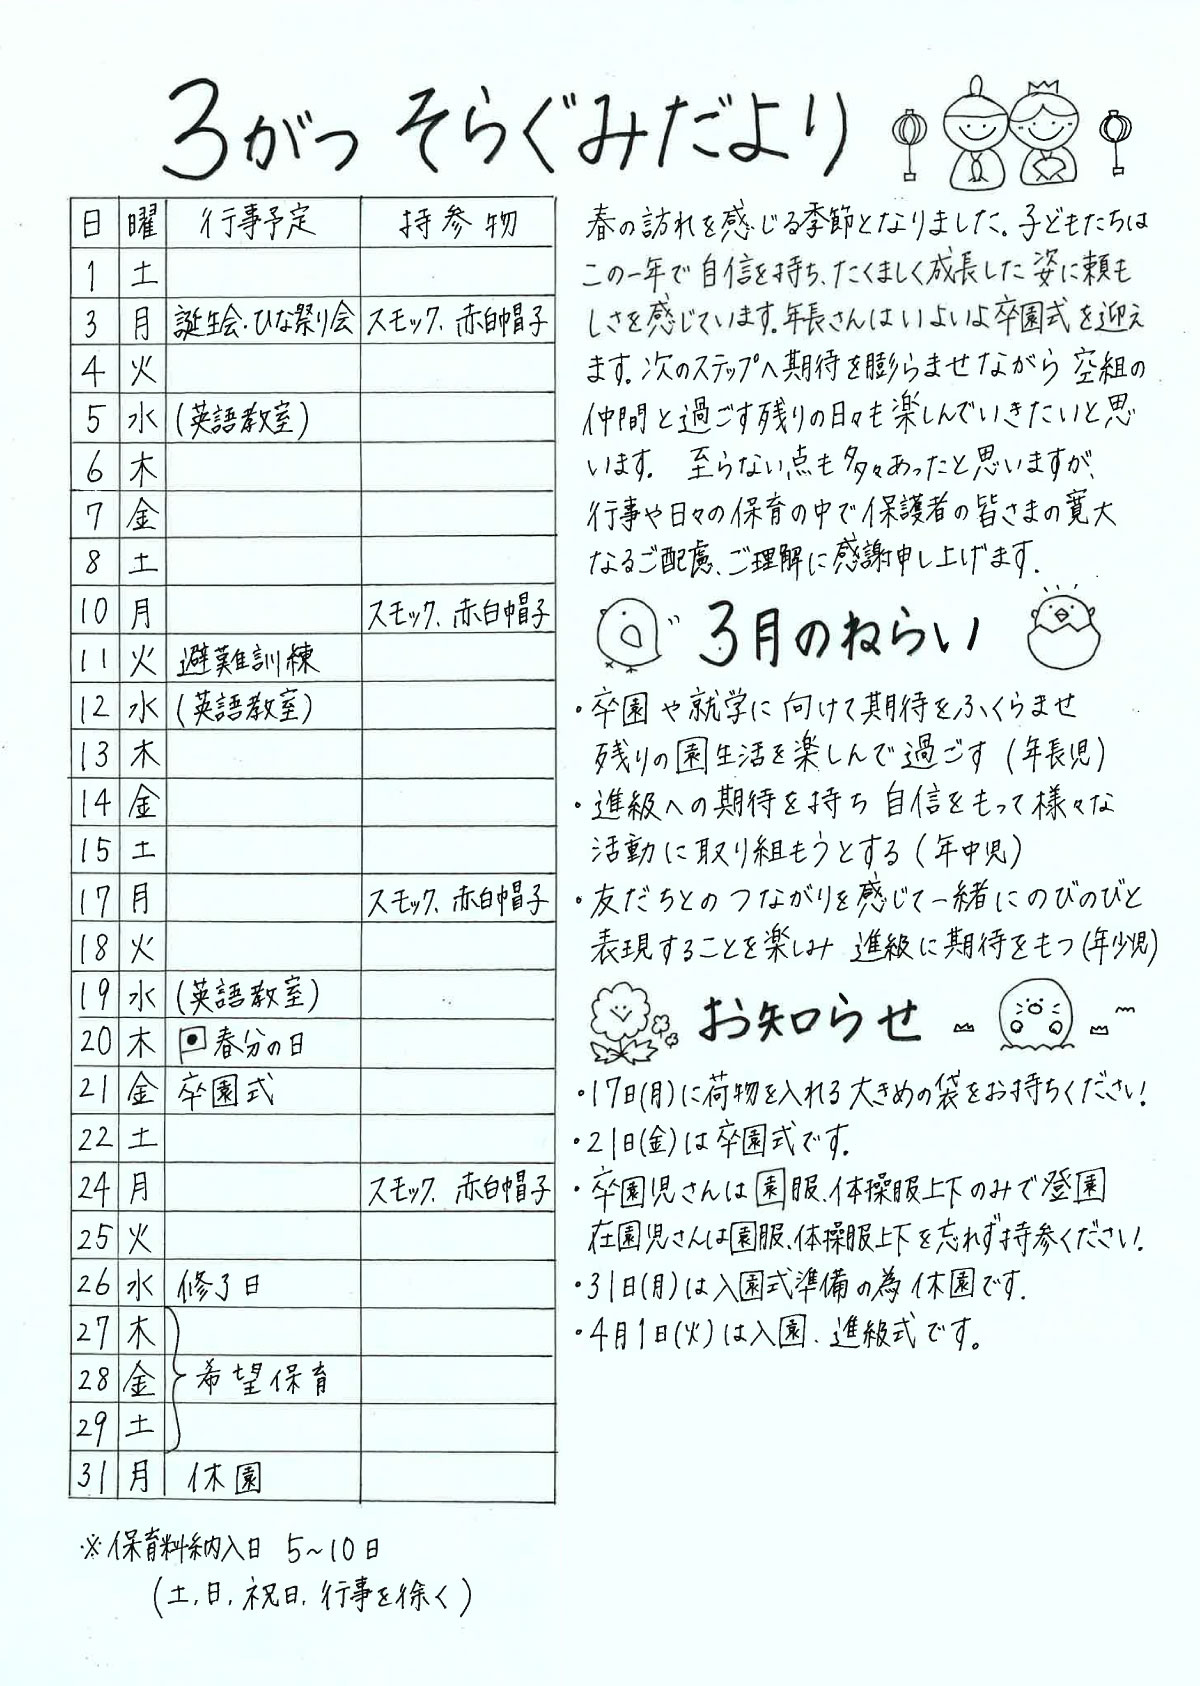 3がつ そらぐみだより
日 曜 行事予定 持参物
1 土
3 月 誕生会・ひな祭り会 スモック、赤白帽子
4 火
5 水 (英語教室)
6 木
7 金
8 土
10 月 スモック、赤白帽子
11 火 避難訓練
12 水 (英語教室)
13 木
14 金
15 土
17 月 スモック、赤白帽子
18 火
19 水 (英語教室)
20 木 春分の日
21 金 卒園式
22 土
24 月 スモック、赤白帽子
25 火
26 水 修了日
27 木
28 金 希望保育
29 土
31 月 休園
※保育料納入日 5~10日
(土,日,祝日,行事を徐く)
春の訪れを感じる季節となりました。子どもたちは
この一年で自信を持ち、たくましく成長した姿に頼も
しさを感じています。年長さんはいよいよ卒園式を迎え
ます。次のステップへ期待を膨らませながら 空組の
仲間と過ごす残りの日々も楽しんでいきたいと思
います。 至らない点も多々あったと思いますが、
行事や日々の保育の中で保護者の皆さまの寛大
なるご配慮、ご理解に感謝申し上げます。
3月のねらい
・卒園や就学に向けて期待をふくらませ
残りの園生活を楽しんで過ごす(年長児)
・進級への期待を持ち 自信をもって様々な
活動に取り組もうとする(年中児)
・友だちとのつながりを感じて一緒にのびのびと
表現することを楽しみ 進級に期待をもつ(年少児)
お知らせ
・17日(月)に荷物を入れる大きめの袋をお持ちください!
・21日(金)は卒園式です。
・卒園児さんは園服、体操服上下のみで登園
在園児さんは園服、体操服上下を忘れず持参ください!
・31日(月)は入園式準備の為休園です.
・4月1日(火)は入園、進級式です。